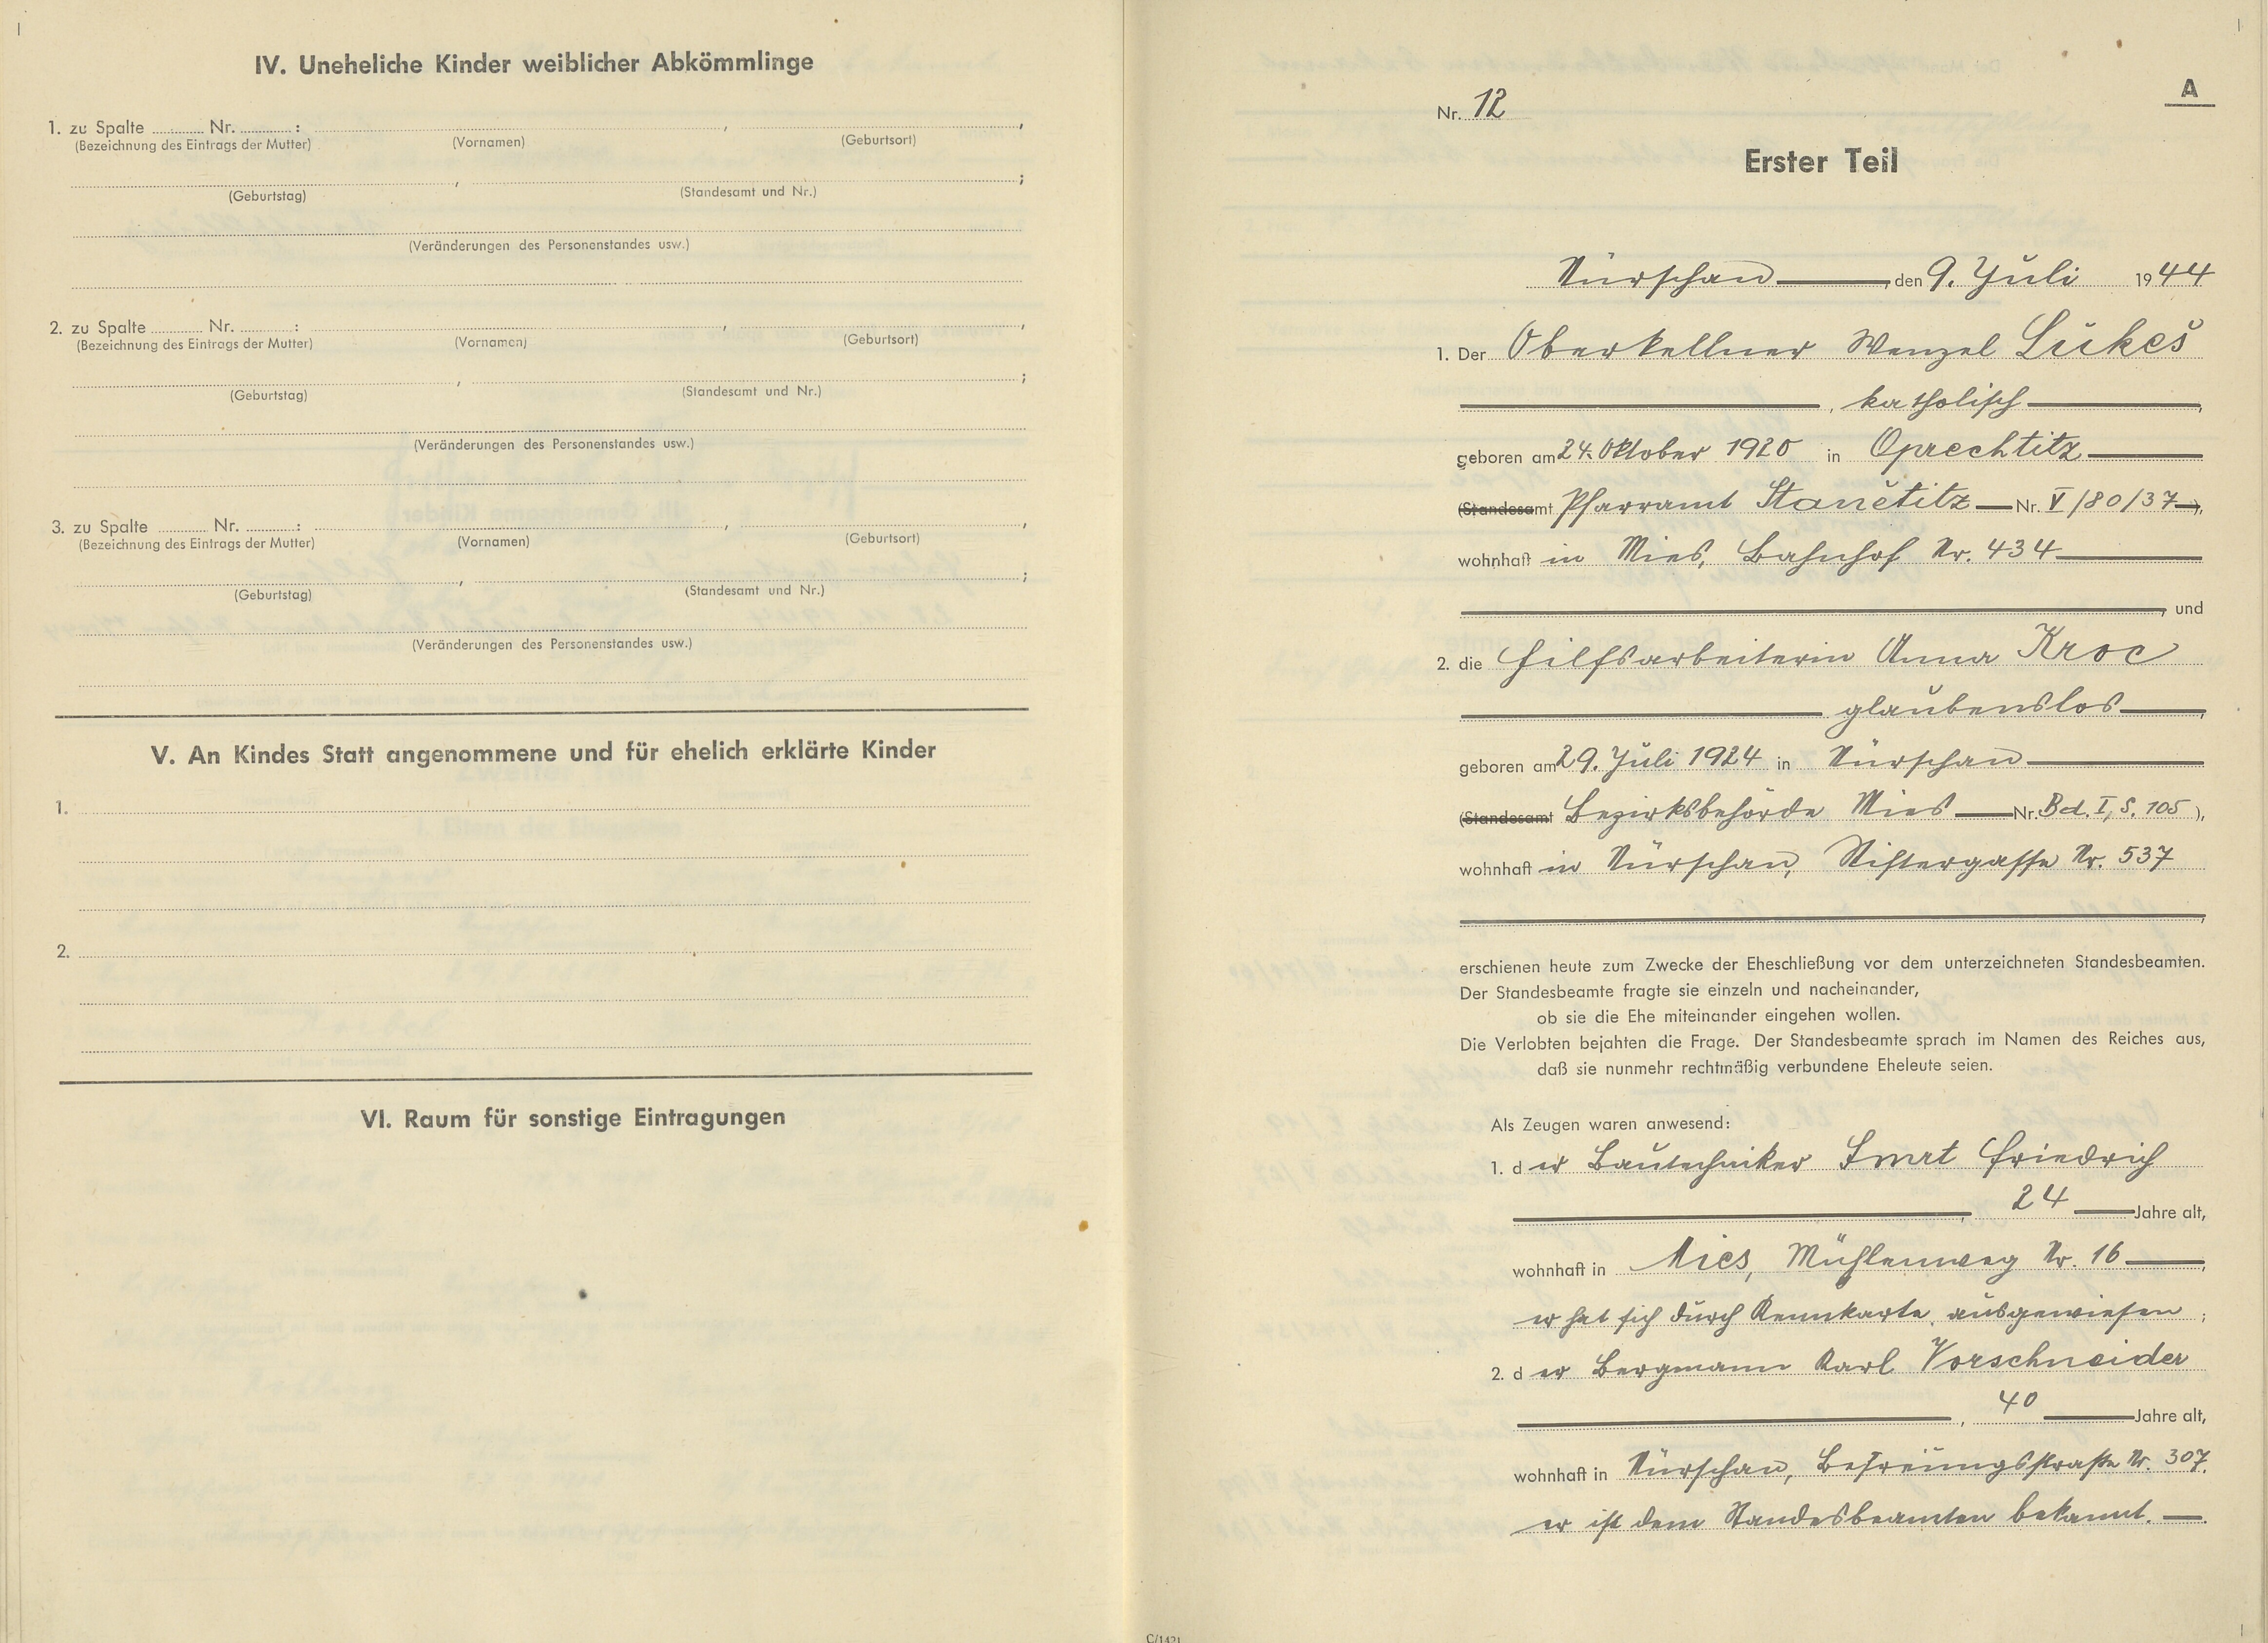 IV. Uneheliche Kinder weiblicher Abkömmlinge
1. zu Spalte ........... Nr. ........... :
(Bezeichnung des Eintrags der Mutter) (Vornamen) (Geburtsort)
(Geburtstag) (Standesamt und Nr.)
(Veränderungen des Personenstandes usw.)
2. zu Spalte ........... Nr. ........... :
(Bezeichnung des Eintrags der Mutter) (Vornamen) (Geburtsort)
(Geburtstag) (Standesamt und Nr.)
(Veränderungen des Personenstandes usw.)
3. zu Spalte ........... Nr. ........... :
(Bezeichnung des Eintrags der Mutter) (Vornamen) (Geburtsort)
(Geburtstag) (Standesamt und Nr.)
(Veränderungen des Personenstandes usw.)
V. An Kindes Statt angenommene und für ehelich erklärte Kinder
1.
2.
VI. Raum für sonstige Eintragungen
A
Nr. 12
Erster Teil
Nürschan, den 9. Juli 1944
1. Der Oberkellner Wenzel Lukeš
, katholisch,
geboren am 24. Oktober 1920 in Oprechtitz
(Standesamt Pfarramt Stanětitz Nr. V/80/37),
wohnhaft in Mies, Bahnhof Nr. 434
, und
2. die Hilfsarbeiterin Anna Kroc
glaubenslos,
geboren am 29. Juli 1924 in Nürschan
(Standesamt Bezirksbehörde Mies Nr. Bd. I, S. 105),
wohnhaft in Nürschan, Stiftergasse Nr. 537
,
erschienen heute zum Zwecke der Eheschließung vor dem unterzeichneten Standesbeamten.
Der Standesbeamte fragte sie einzeln und nacheinander,
ob sie die Ehe miteinander eingehen wollen.
Die Verlobten bejahten die Frage. Der Standesbeamte sprach im Namen des Reiches aus,
daß sie nunmehr rechtmäßig verbundene Eheleute seien.
Als Zeugen waren anwesend:
1. der Bautechniker Smrt Friedrich
, 24 Jahre alt,
wohnhaft in Mies, Mühlenweg Nr. 16,
er hat sich durch Kennkarte ausgewiesen;
2. der Bergmann Karl Vorschneider
, 40 Jahre alt,
wohnhaft in Nürschan, Befreiungsstraße Nr. 307.
er ist dem Standesbeamten bekannt.
C/1421